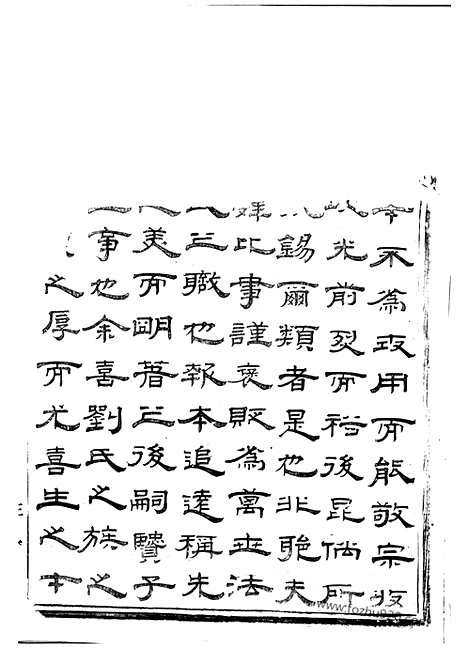 不為攻用而能敬宗收
光前烈而裕後昆所
錫爾類者是也非聰夫
比事謹褒貶為萬世法
之職也報本追遠稱先
美而明著之後嗣贒子
事也余喜劉氏之族之
之厚而尤喜生之本